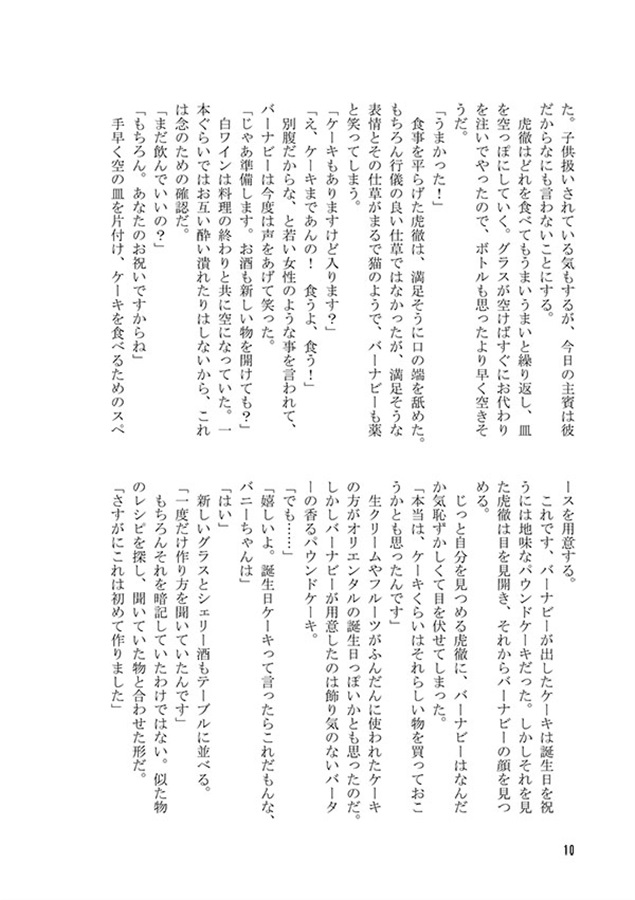 た。子供扱いされている気もするが、今日の主賓は彼
だからなにも言わないことにする。
虎徹はどれを食べてもうまいうまいと繰り返し、皿
を空っぽにしていく。グラスが空けばすぐにお代わり
を注いでやったので、ボトルも思ったより早く空きそ
うだ。
「うまかった！」
食事を平らげた虎徹は、満足そうに口の端を舐めた。
もちろん行儀の良い仕草ではなかったが、満足そうな
表情とその仕草がまるで猫のようで、バーナビーも薬
と笑ってしまう。
「ケーキもありますけど入ります？」
「え、ケーキまであんの！　食うよ、食う！」
別腹だからな、と若い女性のような事を言われて、
バーナビーは今度は声をあげて笑った。
「じゃあ準備します。お酒も新しい物を開けても？」
白ワインは料理の終わりと共に空になっていた。一
本ぐらいではお互い酔い潰れたりはしないから、これ
は念のための確認だ。
「まだ飲んでいいの？」
「もちろん。あなたのお祝いですからね」
手早く空の皿を片付け、ケーキを食べるためのスペ
ースを用意する。
これです、バーナビーが出したケーキは誕生日を祝
うには地味なパウンドケーキだった。しかしそれを見
た虎徹は目を見開き、それからバーナビーの顔を見つ
める。
じっと自分を見つめる虎徹に、バーナビーはなんだ
か気恥ずかしくて目を伏せてしまった。
「本当は、ケーキくらいはそれらしい物を買っておこ
うかとも思ったんです」
生クリームやフルーツがふんだんに使われたケーキ
の方がオリエンタルの誕生日っぽいかとも思ったのだ。
しかしバーナビーが用意したのは飾り気のないバータ
ーの香るパウンドケーキ。
「でも……」
「嬉しいよ。誕生日ケーキって言ったらこれだもんな、
バニーちゃんは」
「はい」
新しいグラスとシェリー酒もテーブルに並べる。
「一度だけ作り方を聞いていたんです」
もちろんそれを暗記していたわけではない。似た物
のレシピを探し、聞いていた物と合わせた形だ。
「さすがにこれは初めて作りました」
10